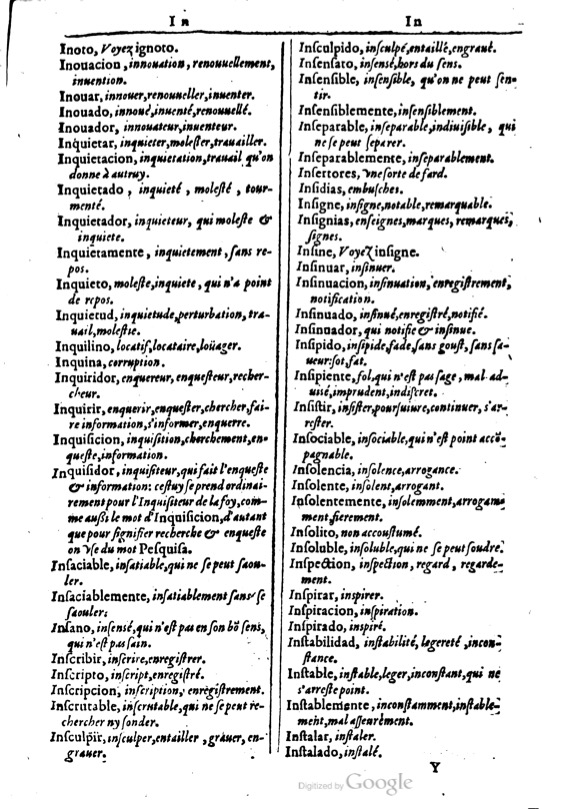 In
Inoto, Voyez ignoto.
Inouacion, innouation, renouuellement,
inuention.
Inouar, innouer, renouueller, inuenter.
Inouado, innoué, inuenté, renouuellé.
Inouador, innouateur, inuenteur.
Inquietar, inquieter, molester, trauailler.
Inquietacion, inquietation, trauail qu'on
donne à autruy.
Inquietado, inquieté, molesté, tour-
menté.
Inquietador, inquieteur, qui moleste &
inquiete.
Inquietamente, inquietement, sans re-
pos.
Inquieto, moleste, inquiete, qui n'a point
de repos.
Inquietud, inquietude, perturbation, tra-
uail, molestie.
Inquilino, locatif, locataire, loüager.
Inquina, corruption.
Inquiridor, enquereur, enquesteur, recher-
cheur.
Inquirir, enquerir, enquester, chercher, fai-
re information, s'informer, enquerre.
Inquisicion, inquisition, cherchement, en-
queste, information.
Inquisidor, inquisiteur, qui fait l'enqueste
& information: cestuy se prend ordinai-
rement pour l'Inquisiteur de la foy, com-
me aussi le mot d'Inquisicion, d'autant
que pour signifier recherche & enqueste
on vse du mot Pesquisa.
Insaciable, insatiable, qui ne se peut saou-
ler.
Insaciablemente, insatiablement sans se
saouler.
Insano, insensé, qui n'est pas en son bõ sens,
qui n'est pas sain.
Inscribir, inscrire, enregistrer.
Inscripto, inscript, enregistré.
Inscripcion, inscription, enregistrement.
Inscrutable, inscrutable, qui ne se peut re-
chercher ny sonder.
Insculpir, insculper, entailler, grauer, en-
grauer.
In
Insculpido, insculpé, entaillé, engraué.
Insensato, insensé, hors du sens.
Insensible, insensible, qu'on ne peut sen-
tir.
Insensiblemente, insensiblement.
Inseparable, inseparable, indiuisible, qui
ne se peut separer.
Inseparablemente, inseparablement.
Insertores, vne sorte de fard.
Insidias, embusches.
Insigne, insigne, notable, remarquable.
Insignias, enseignes, marques, remarques,
signes.
Insine, Voyez insigne.
Insinuar, insinuer.
Insinuacion, insinuation, enregistrement,
notification.
Insinuado, insinué, enregistré, notifié.
Insinuador, qui notifie & insinue.
Insipido, insipide, fade, sans goust, sans sa-
ueur: sot, fat.
Insipiente, fol, qui n'est pas sage, mal ad-
uisé, imprudent, indiscret.
Insistir, insister, poursuiure, continuer, s'ar-
rester.
Insociable, insociable, qui n'est point accõ-
pagnable.
Insolencia, insolence, arrogance.
Insolente, insolent, arrogant.
Insolentemente, insolemment, arrogam-
ment, fierement.
Insolito, non accoustumé.
Insoluble, insoluble, qui ne se peut soudre.
Inspection, inspection, regard, regarde-
ment.
Inspirar, inspirer.
Inspiracion, inspiration.
Inspirado, inspiré.
Instabilidad, instabilité, legereté, incon-
stance.
Instable, instable, leger, inconstant, qui ne
s'arreste point.
Instablemente, inconstamment, instable-
ment, mal asseurément.
Instalar, instaler.
Instalado, instalé.
Y
Digitized by Google